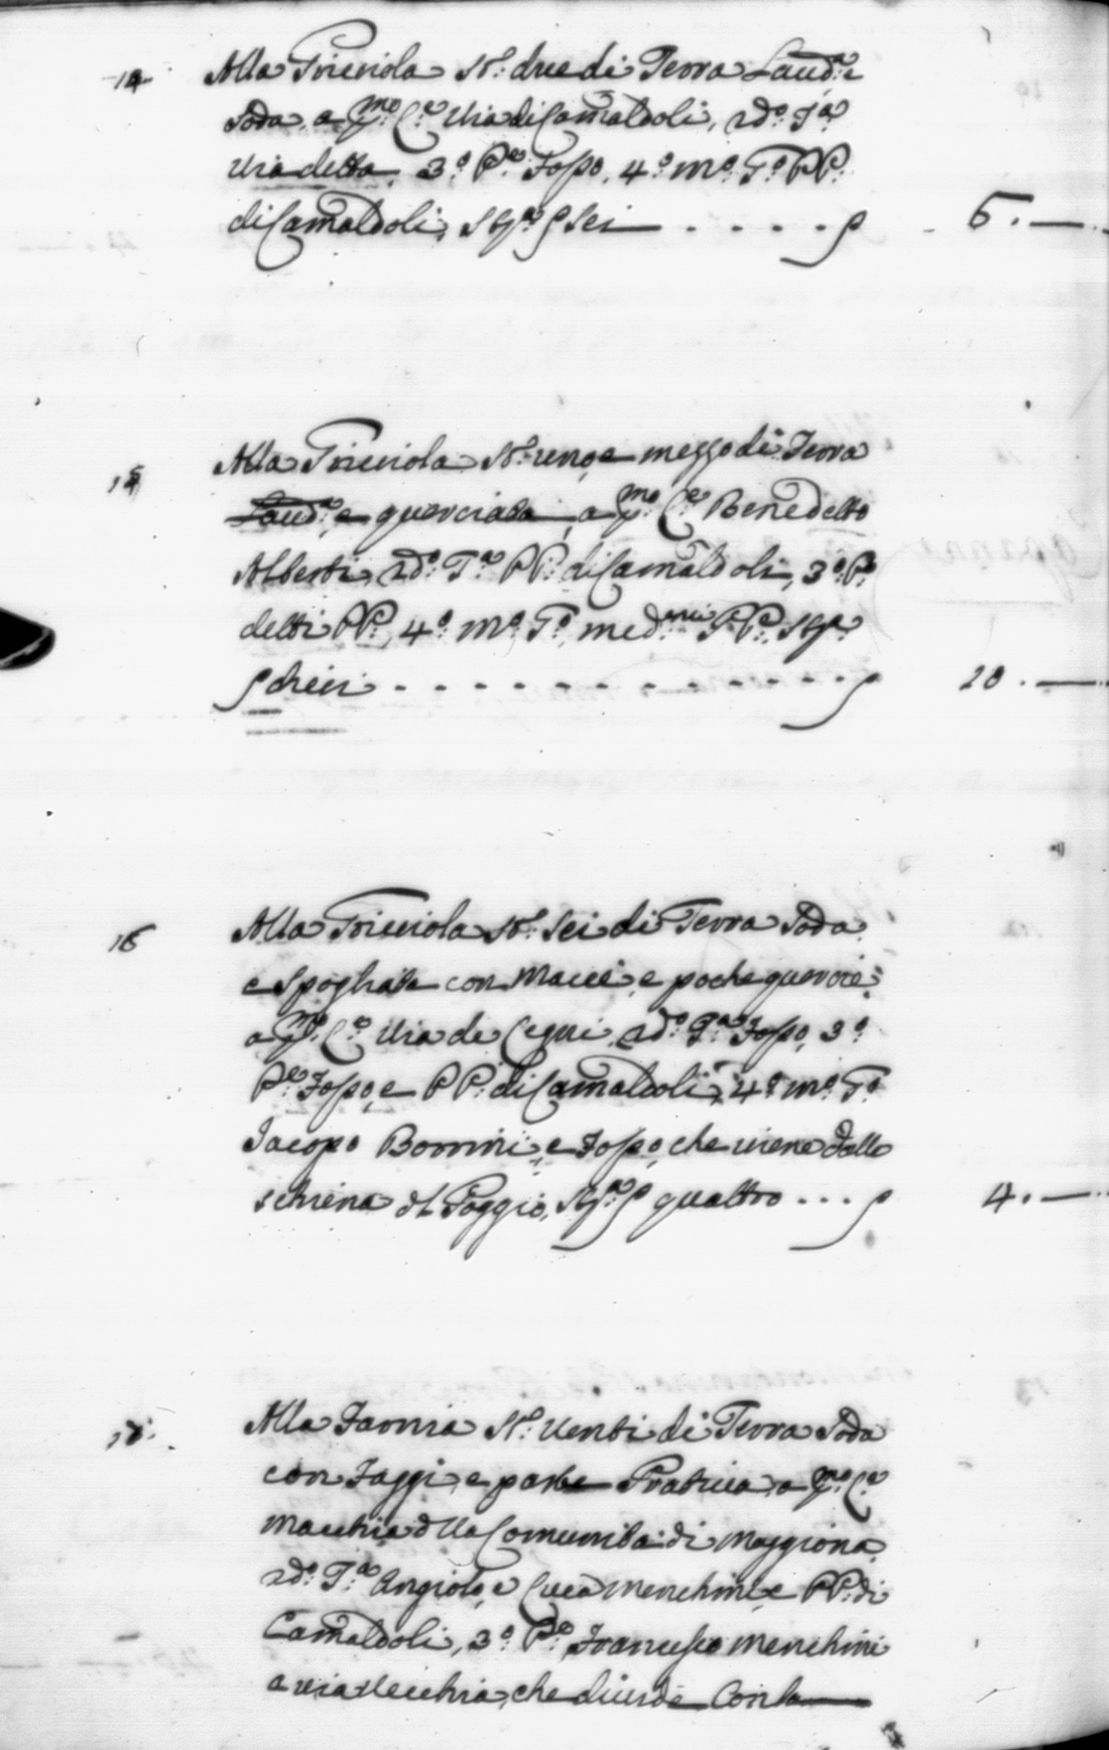 14 Alla Triciola St: due di Terra Laud:a e
soda, a P:mo C:e Via di Camaldoli, 2do: Ta:
Via detta, 3:o P:e Fosso, 4:o m:o T:o PP:
di Camaldoli, sti:a ₰ sei - - - - ₰ 6. —
15 Alla Triciola St: uno, e mezzo di Terra
Laud:a e querciata, a P:mo C:e Benedetto
Alberti, 2do: T:a PP: di Camaldoli, 3:o P:
detti PP:, 4:o m:o T:o med:mi PP: sti:a
₰ dieci - - - - - - - - - - - - ₰ 10. —
16 Alla Triciola St: sei di Terra soda
e spogliata con Macei, e poche quercie,
a P:mo C:o Via de Cegni, 2do: T:a Fosso, 3:o
P:e Fosso, e PP: di Camaldoli, 4:o m:o T:o
Jacopo Bonini, e Fosso, che viene dalla
schiena dl Poggio, sti:a ₰ quattro ... ₰ 4. —
17 Alla Farnia St: Venti di Terra soda
con Faggi, e parte Pratiua, a P:mo C:e
Macchia dlla Comunita: di Moggiona,
2do: T:a Angiolo, e Luca Menchini, e PP: di
Camaldoli, 3:o P:o Francesco Menchini
e via Vecchia, che divide Con la